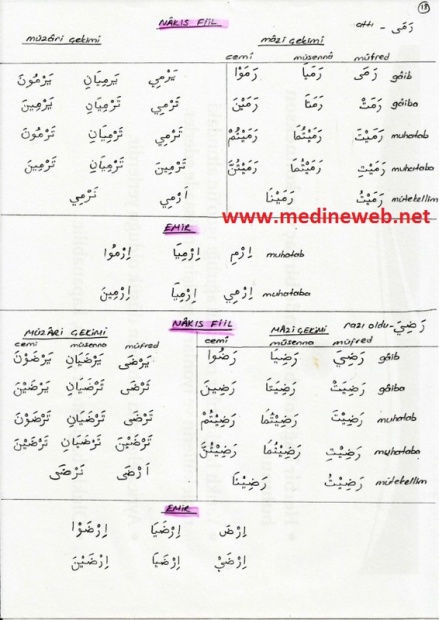 18
NÂKIS FİİL
attı - رَمَى
MÜZÂRİ ÇEKİMİ
MÂZİ ÇEKİMİ
cemi müsennâ müfred
gâib رَمَى رَمَيَا رَمَوْا يَرْمِي يَرْمِيَانِ يَرْمُونَ
gâiba رَمَتْ رَمَتَا رَمَيْنَ تَرْمِي تَرْمِيَانِ يَرْمِينَ
muhatab رَمَيْتَ رَمَيْتُمَا رَمَيْتُمْ تَرْمِي تَرْمِيَانِ تَرْمُونَ
muhataba رَمَيْتِ رَمَيْتُمَا رَمَيْتُنَّ تَرْمِينَ تَرْمِيَانِ تَرْمِينَ
mütekellim رَمَيْتُ رَمَيْنَا اَرْمِي نَرْمِي
www.medineweb.net
EMİR
muhatab اِرْمِ اِرْمِيَا اِرْمُوا
muhataba اِرْمِي اِرْمِيَا اِرْمِينَ
MÜZÂRİ ÇEKİMİ NÂKIS FİİL MÂZİ ÇEKİMİ razı oldu - رَضِيَ
cemi müsenna müfred cemi müsennâ müfred
gâib رَضِيَ رَضِيَا رَضُوا يَرْضَى يَرْضَيَانِ يَرْضَوْنَ
gâiba رَضِيَتْ رَضِيَتَا رَضِينَ تَرْضَى تَرْضَيَانِ يَرْضَيْنَ
muhatab رَضِيْتَ رَضِيْتُمَا رَضِيْتُمْ تَرْضَى تَرْضَيَانِ تَرْضَوْنَ
muhataba رَضِيْتِ رَضِيْتُمَا رَضِيْتُنَّ تَرْضَيْنَ تَرْضَيَانِ تَرْضَيْنَ
mütekellim رَضِيْتُ رَضِيْنَا اَرْضَى نَرْضَى
EMİR
اِرْضَ اِرْضَيَا اِرْضَوْا
اِرْضَيْ اِرْضَيَا اِرْضَيْنَ